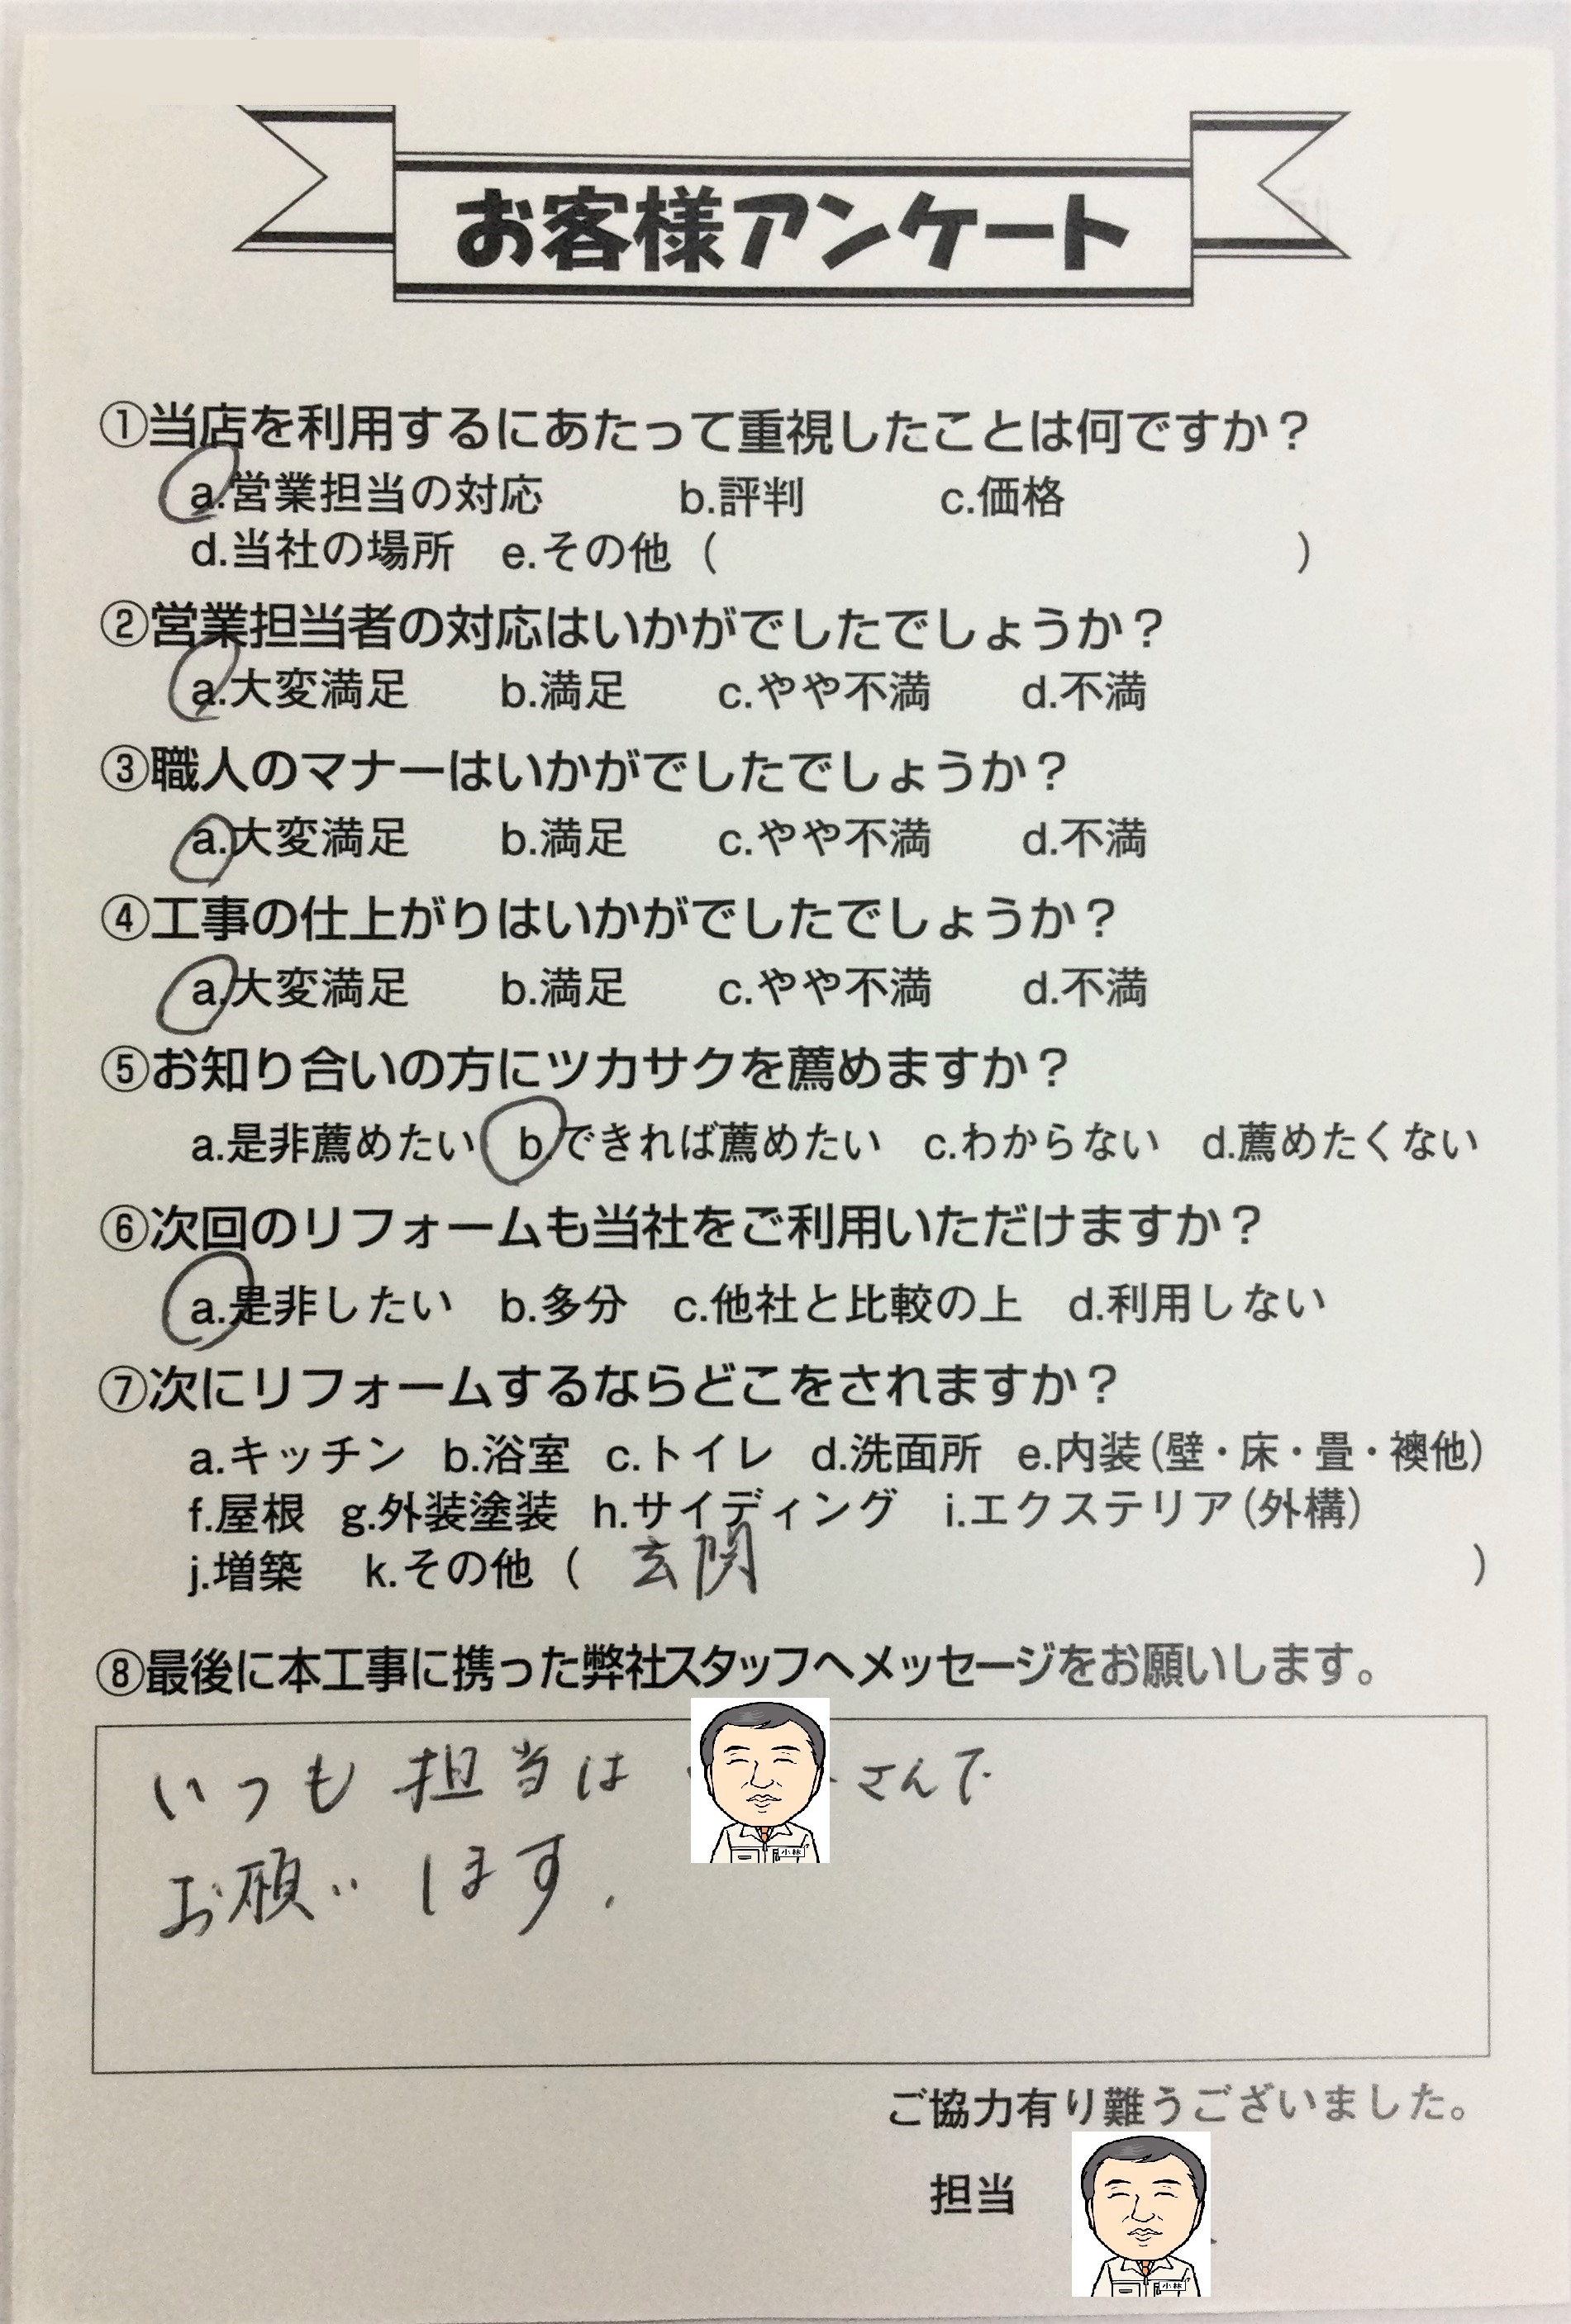 お客様アンケート
①当店を利用するにあたって重視したことは何ですか？
a.営業担当の対応 b.評判 c.価格
d.当社の場所 e.その他（ ）
②営業担当者の対応はいかがでしたでしょうか？
a.大変満足 b.満足 c.やや不満 d.不満
③職人のマナーはいかがでしたでしょうか？
a.大変満足 b.満足 c.やや不満 d.不満
④工事の仕上がりはいかがでしたでしょうか？
a.大変満足 b.満足 c.やや不満 d.不満
⑤お知り合いの方にツカサクを薦めますか？
a.是非薦めたい b.できれば薦めたい c.わからない d.薦めたくない
⑥次回のリフォームも当社をご利用いただけますか？
a.是非したい b.多分 c.他社と比較の上 d.利用しない
⑦次にリフォームするならどこをされますか？
a.キッチン b.浴室 c.トイレ d.洗面所 e.内装（壁・床・畳・襖他）
f.屋根 g.外装塗装 h.サイディング i.エクステリア（外構）
j.増築 k.その他（ 玄関 ）
⑧最後に本工事に携った弊社スタッフへメッセージをお願いします。
いつも担当は さんで
小林
お願いします.
ご協力有り難うございました。
担当
小林